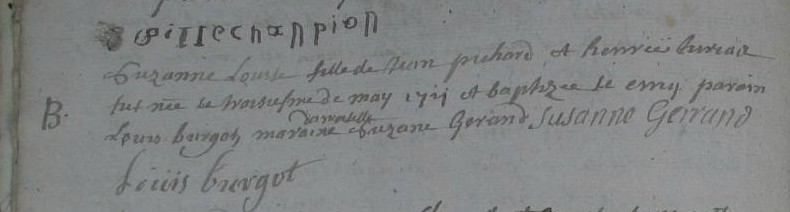 gillechanpion
Suzanne Louise fille de Jean pichard et henrië bureau
fut née le troisiesme de may 1711 et baptizee le parain
damoiselle
B. Louis burgot maraine Suzane Gerand Susanne Gerrand
Louis burgot